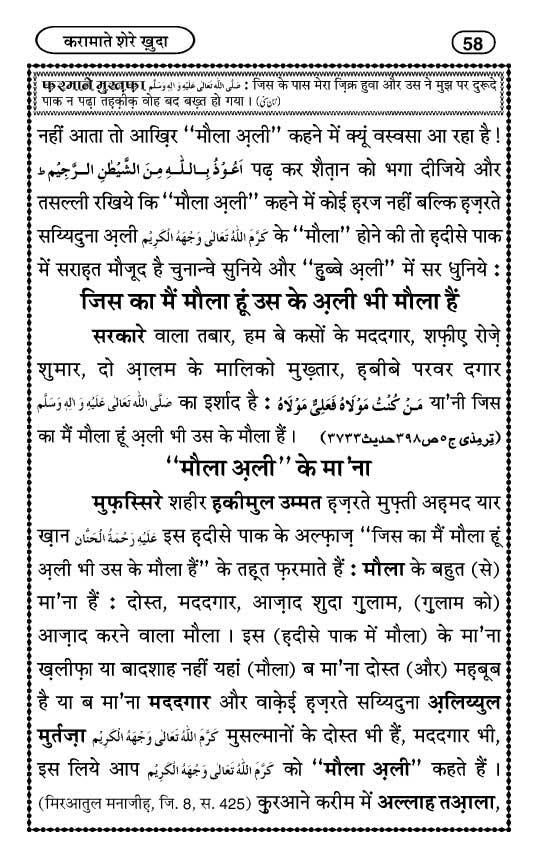 करामाते शेरे ख़ुदा
58
फ़रमाने मुस्तफ़ा صَلَّى اللهُ تَعَالٰى عَلَيْهِ وَاٰلِهٖ وَسَلَّم : जिस के पास मेरा ज़िक्र हुवा और उस ने मुझ पर दुरूदे
पाक न पढ़ा तहक़ीक़ वोह बद बख़्त हो गया ।
नहीं आता तो आख़िर ‘‘मौला अ़ली’’ कहने में क्यूं वस्वसा आ रहा है !
اَعُوْذُ بِاللّٰهِ مِنَ الشَّيْطٰنِ الرَّجِيْمِ ط पढ़ कर शैत़ान को भगा दीजिये और
तसल्ली रखिये कि ‘‘मौला अ़ली’’ कहने में कोई ह़रज नहीं बल्कि ह़ज़रते
सय्यिदुना अ़ली كَرَّمَ اللهُ تَعَالٰى وَجْهَهُ الْكَرِيْم के ‘‘मौला’’ होने की तो ह़दीसे पाक
में सराह़त मौजूद है चुनान्चे सुनिये और ‘‘ह़ुब्बे अ़ली’’ में सर धुनिये :
जिस का मैं मौला हूं उस के अ़ली भी मौला हैं
सरकारे वाला तबार, हम बे कसों के मददगार, शफ़ीए़ रोज़े
शुमार, दो अ़ालम के मालिको मुख़्तार, ह़बीबे परवर दगार
صَلَّى اللهُ تَعَالٰى عَلَيْهِ وَاٰلِهٖ وَسَلَّم का इर्शाद है : مَنْ كُنْتُ مَوْلَاهُ فَعَلِىٌّ مَوْلَاهُ या’नी जिस
का मैं मौला हूं अ़ली भी उस के मौला हैं । (تِرمِذی ج۵ص۳۹۸حدیث۳۷۳۳)
‘‘मौला अ़ली’’ के मा’ना
मुफ़स्सिरे शहीर ह़कीमुल उम्मत ह़ज़रते मुफ़्ती अह़मद यार
ख़ान عَلَيْهِ رَحْمَةُ الْحَنَّان इस ह़दीसे पाक के अल्फ़ाज़ ‘‘जिस का मैं मौला हूं
अ़ली भी उस के मौला हैं’’ के तह़्त फ़रमाते हैं : मौला के बहुत (से)
मा’ना हैं : दोस्त, मददगार, आज़ाद शुदा ग़ुलाम, (ग़ुलाम को)
आज़ाद करने वाला मौला । इस (ह़दीसे पाक में मौला) के मा’ना
ख़लीफ़ा या बादशाह नहीं यहां (मौला) ब मा’ना दोस्त (और) मह़बूब
है या ब मा’ना मददगार और वाक़ेई़ ह़ज़रते सय्यिदुना अ़लिय्युल
मुर्तज़ा كَرَّمَ اللهُ تَعَالٰى وَجْهَهُ الْكَرِيْم मुसल्मानों के दोस्त भी हैं, मददगार भी,
इस लिये आप كَرَّمَ اللهُ تَعَالٰى وَجْهَهُ الْكَرِيْم को ‘‘मौला अ़ली’’ कहते हैं ।
(मिरआतुल मनाजीह़, जि. 8, स. 425) क़ुरआने करीम में अल्लाह तअ़ाला,